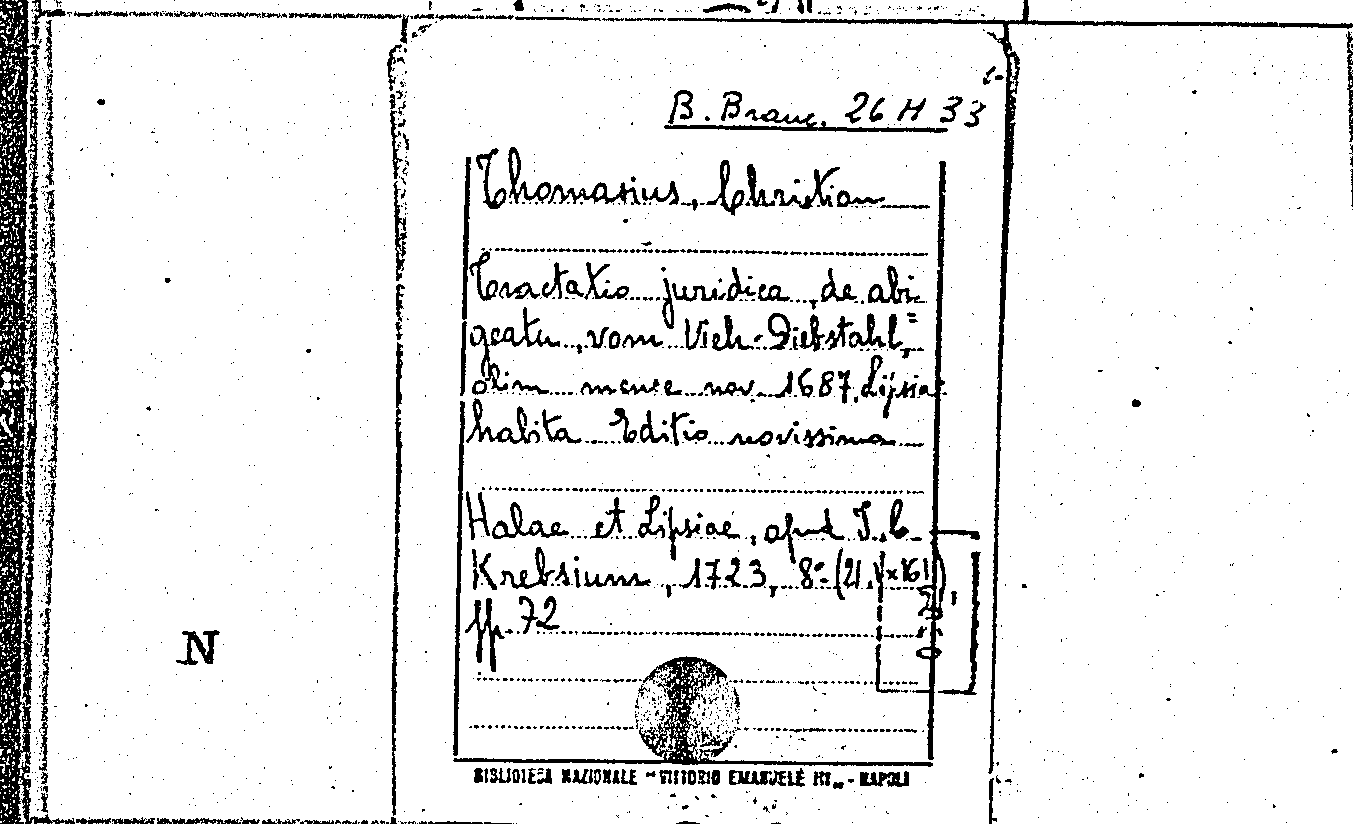 B. Branc. 26 H 33
Thomasius, Christian
Tractatio juridica, de abi-
geatu, vom Vieh-Diebstahl,=
olim mense nov. 1687. Lipsiae
habita Editio novissima
Halae et Lipsiae, apud J. C.
Krebsium, 1723, 8° (21.
pp. 72
N
BIBLIOTECA NAZIONALE "VITTORIO EMANUELE III" - NAPOLI